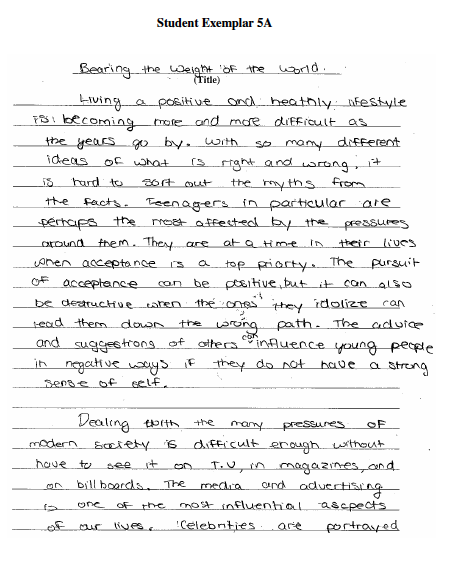 Student Exemplar 5A
Bearing the weight of the world.
(Title)
Living a positive and heathly lifestyle
is becoming more and more difficult as
the years go by. With so many different
ideas of what is right and wrong, it
is hard to sort out the myths from
the facts. Teenagers in particular are
perhaps the most affected by the pressures
around them. They are at a time in their lives
when acceptance is a top priorty. The pursuit
of acceptance can be positive, but it can also
be destructive when the "ones" they idolize can
lead them down the wrong path. The advice
and suggestions of others can influence young people
in negative ways if they do not have a strong
sense of self.
Dealing with the many pressures of
modern society is difficult enough without
have to see it on T.V, in magazines, and
on billboards. The media and advertising
is one of the most influential ascpects
of our lives. Celebrities are portrayed